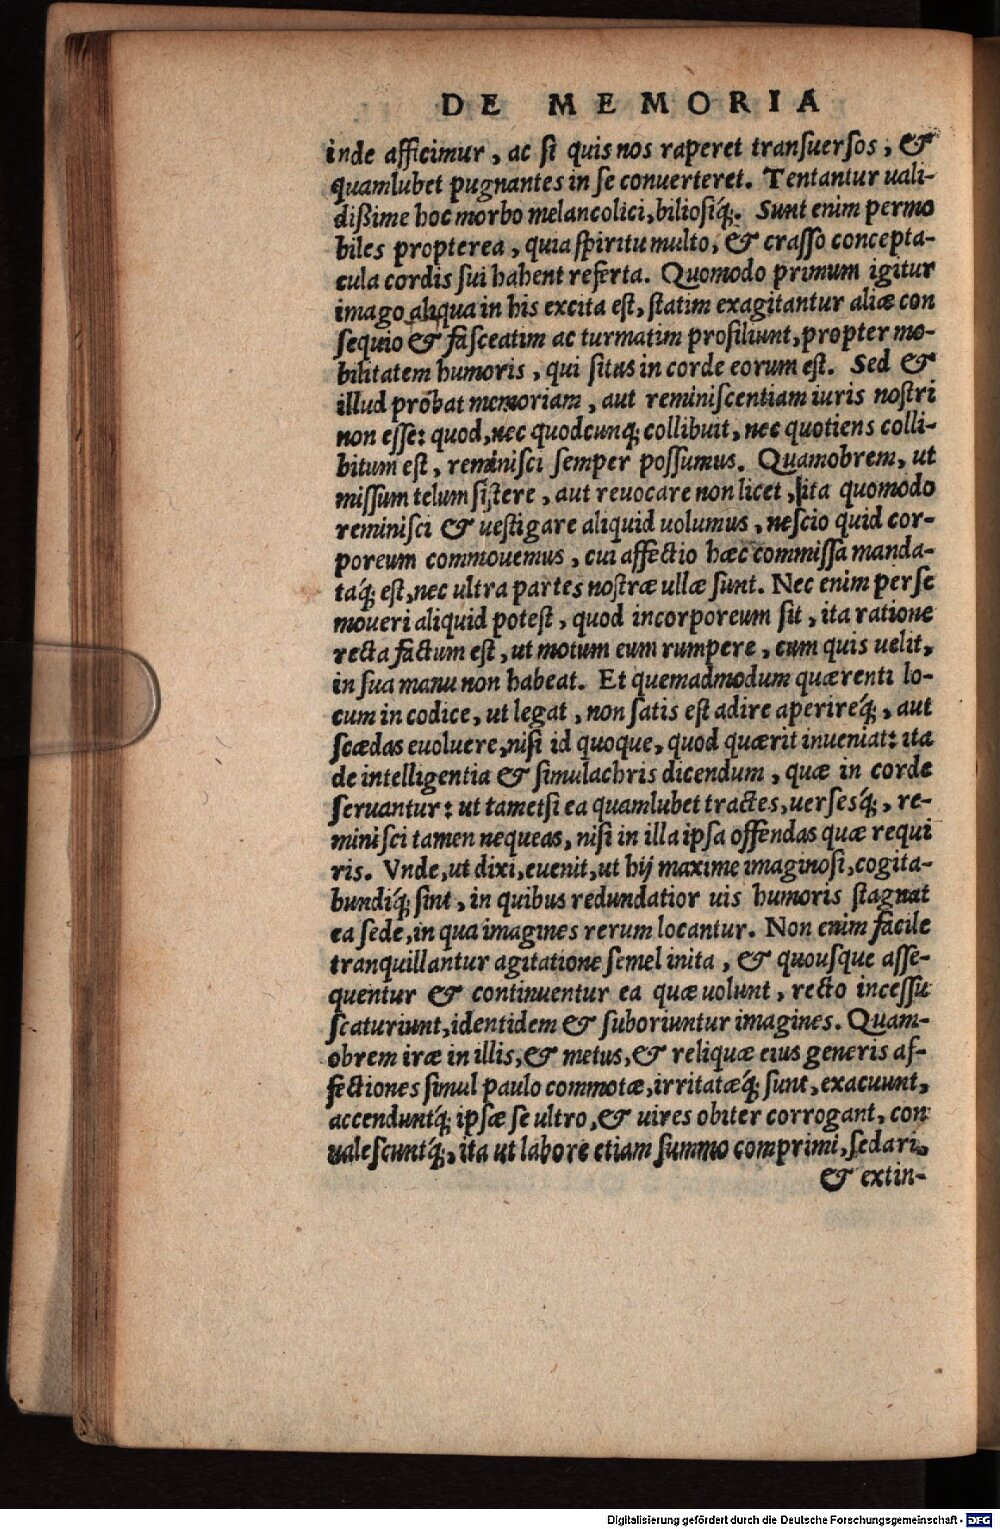 DE MEMORIA
inde afficimur, ac si quis nos raperet transuersos, &
quamlubet pugnantes in se conuerteret. Tentantur uali-
dißime hoc morbo melancolici, biliosiq́;. Sunt enim permo
biles propterea, quia spiritu multo, & crasso concepta-
cula cordis sui habent referta. Quomodo primum igitur
imago aliqua in his excita est, statim exagitantur aliæ con
sequio & fasceatim ac turmatim prosiliunt, propter mo-
bilitatem humoris, qui situs in corde eorum est. Sed &
illud probat memoriam, aut reminiscentiam iuris nostri
non esse: quod, nec quodcunq; collibuit, nec quotiens colli-
bitum est, reminisci semper possumus. Quamobrem, ut
missum telum sistere, aut reuocare non licet, ita quomodo
reminisci & uestigare aliquid uolumus, nescio quid cor-
poreum commouemus, cui affectio hæc commissa manda-
taq́; est, nec ultra partes nostræ ullæ sunt. Nec enim per se
moueri aliquid potest, quod incorporeum sit, ita ratione
recta factum est, ut motum eum rumpere, cum quis uelit,
in sua manu non habeat. Et quemadmodum quærenti lo-
cum in codice, ut legat, non satis est adire aperireq́;, aut
scædas euoluere, nisi id quoque, quod quærit inueniat: ita
de intelligentia & simulachris dicendum, quæ in corde
seruantur: ut tametsi ea quamlubet tractes, uersesq́;, re-
minisci tamen nequeas, nisi in illa ipsa offendas quæ requi
ris. Vnde, ut dixi, euenit, ut hij maxime imaginosi, cogita-
bundiq́; sint, in quibus redundatior uis humoris stagnat
ea sede, in qua imagines rerum locantur. Non enim facile
tranquillantur agitatione semel inita, & quousque asse-
quentur & continuentur ea quæ uolunt, recto incessu
scaturiunt, identidem & suboriuntur imagines. Quam-
obrem iræ in illis, & metus, & reliquæ eius generis af-
fectiones simul paulo commotæ, irritatæq́; sunt, exacuunt,
accenduntq́; ipsæ se ultro, & uires obiter corrogant, con
ualescuntq́;, ita ut labore etiam summo comprimi, sedari,
& extin-
Digitalisierung gefördert durch die Deutsche Forschungsgemeinschaft - DFG